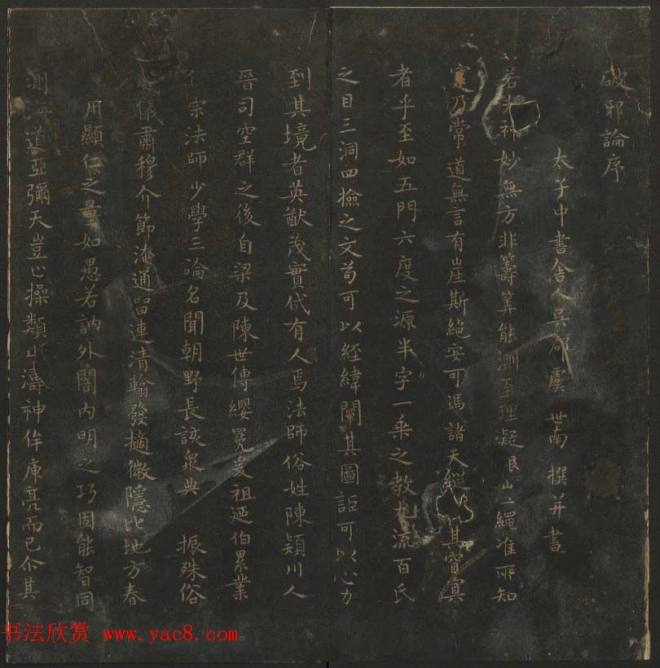 破邪論序
太子中書舍人吳郡虞世南撰并書
若夫神妙無方非籌筭能測至理凝繩准所知
乃常道無言有崖斯絕安可馮諸天其窅冥
者乎至如五門六度之源半字一乘之教九流百氏
之目三洞四撿之文苟可以經緯闡其圖詎可以心力
到其境者英猷茂實代有人焉法師俗姓陳潁川人
晉司空群之後自梁及陳世傳纓冕爰祖邇伯累業
宗法師少學三論名聞朝野長該衆典振殊俗
儀肅穆介節淹通留連清翰發擿微隱比地方春
用顯仁之量如愚若訥外闇內明之巧固能智同
測海道亞彌天豈止操類山濤神侔庾亮而已尒其
书法欣赏 www.yac8.com